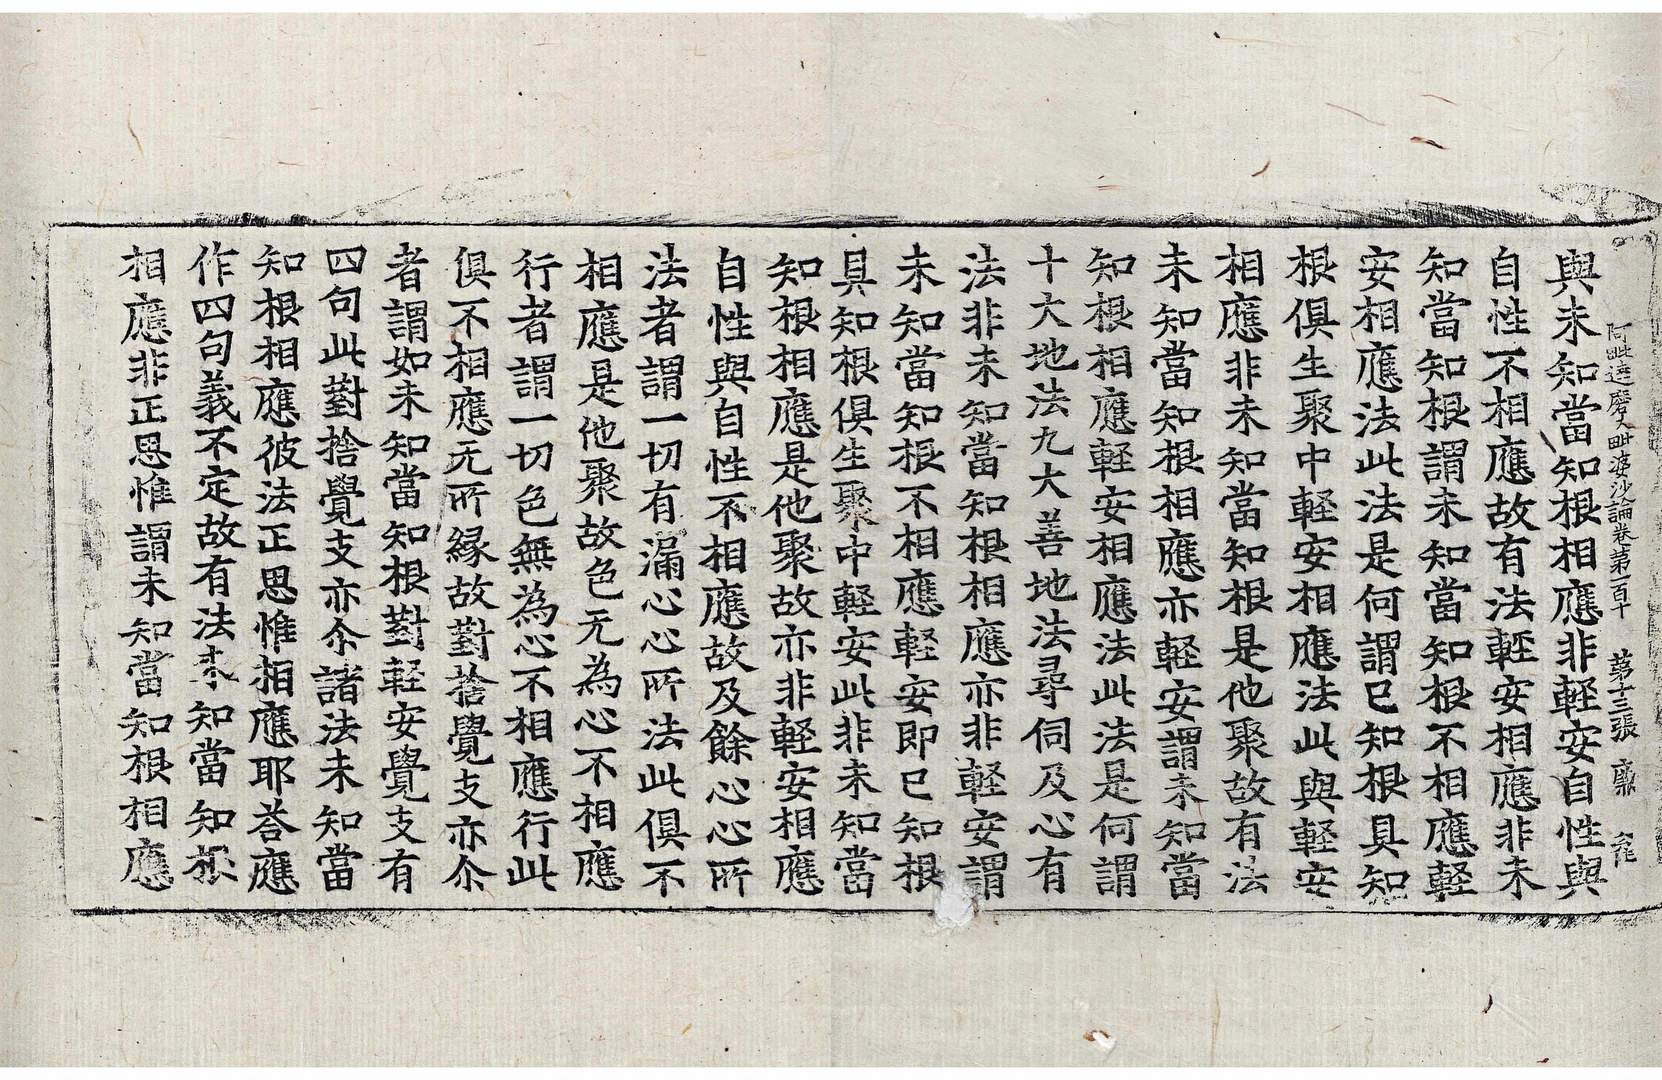 阿毗達磨大毗婆沙論卷第一百十　第十三張　鼎
與未知當知根相應非輕安自性與
自性不相應故有法輕安相應非未
知當知根謂未知當知根不相應輕
安相應法此法是何謂已知根具知
根俱生聚中輕安相應法此與輕安
相應非未知當知根是他聚故有法
未知當知根相應亦輕安謂未知當
知根相應輕安相應法此法是何謂
十大地法九大善地法尋伺及心有
法非未知當知根相應亦非輕安謂
未知當知根不相應輕安即已知根
具知根俱生聚中輕安此非未知當
知根相應是他聚故亦非輕安相應
自性與自性不相應故及餘心心所
法者謂一切有漏心心所法此俱不
相應是他聚故色无為心不相應
行者謂一切色無為心不相應行此
俱不相應无所緣故對捨覺支亦尒
者謂如未知當知根對輕安覺支有
四句此對捨覺支亦尒諸法未知當
知根相應彼法正思惟相應耶荅應
作四句義不定故有法未知當知根
相應非正思惟謂未知當知根相應